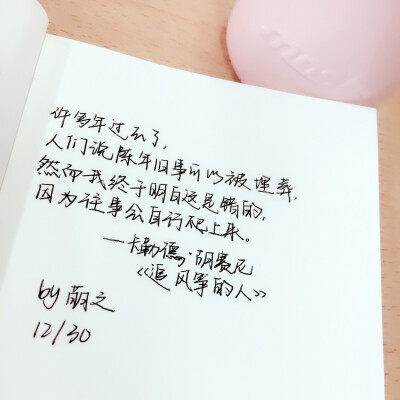 许多年过去了，
人们说陈年旧事可以被埋葬，
然而我终于明白这是错的，
因为往事会自行爬上来。
—卡勒德·胡赛尼
《追风筝的人》
by 萌之
12/30